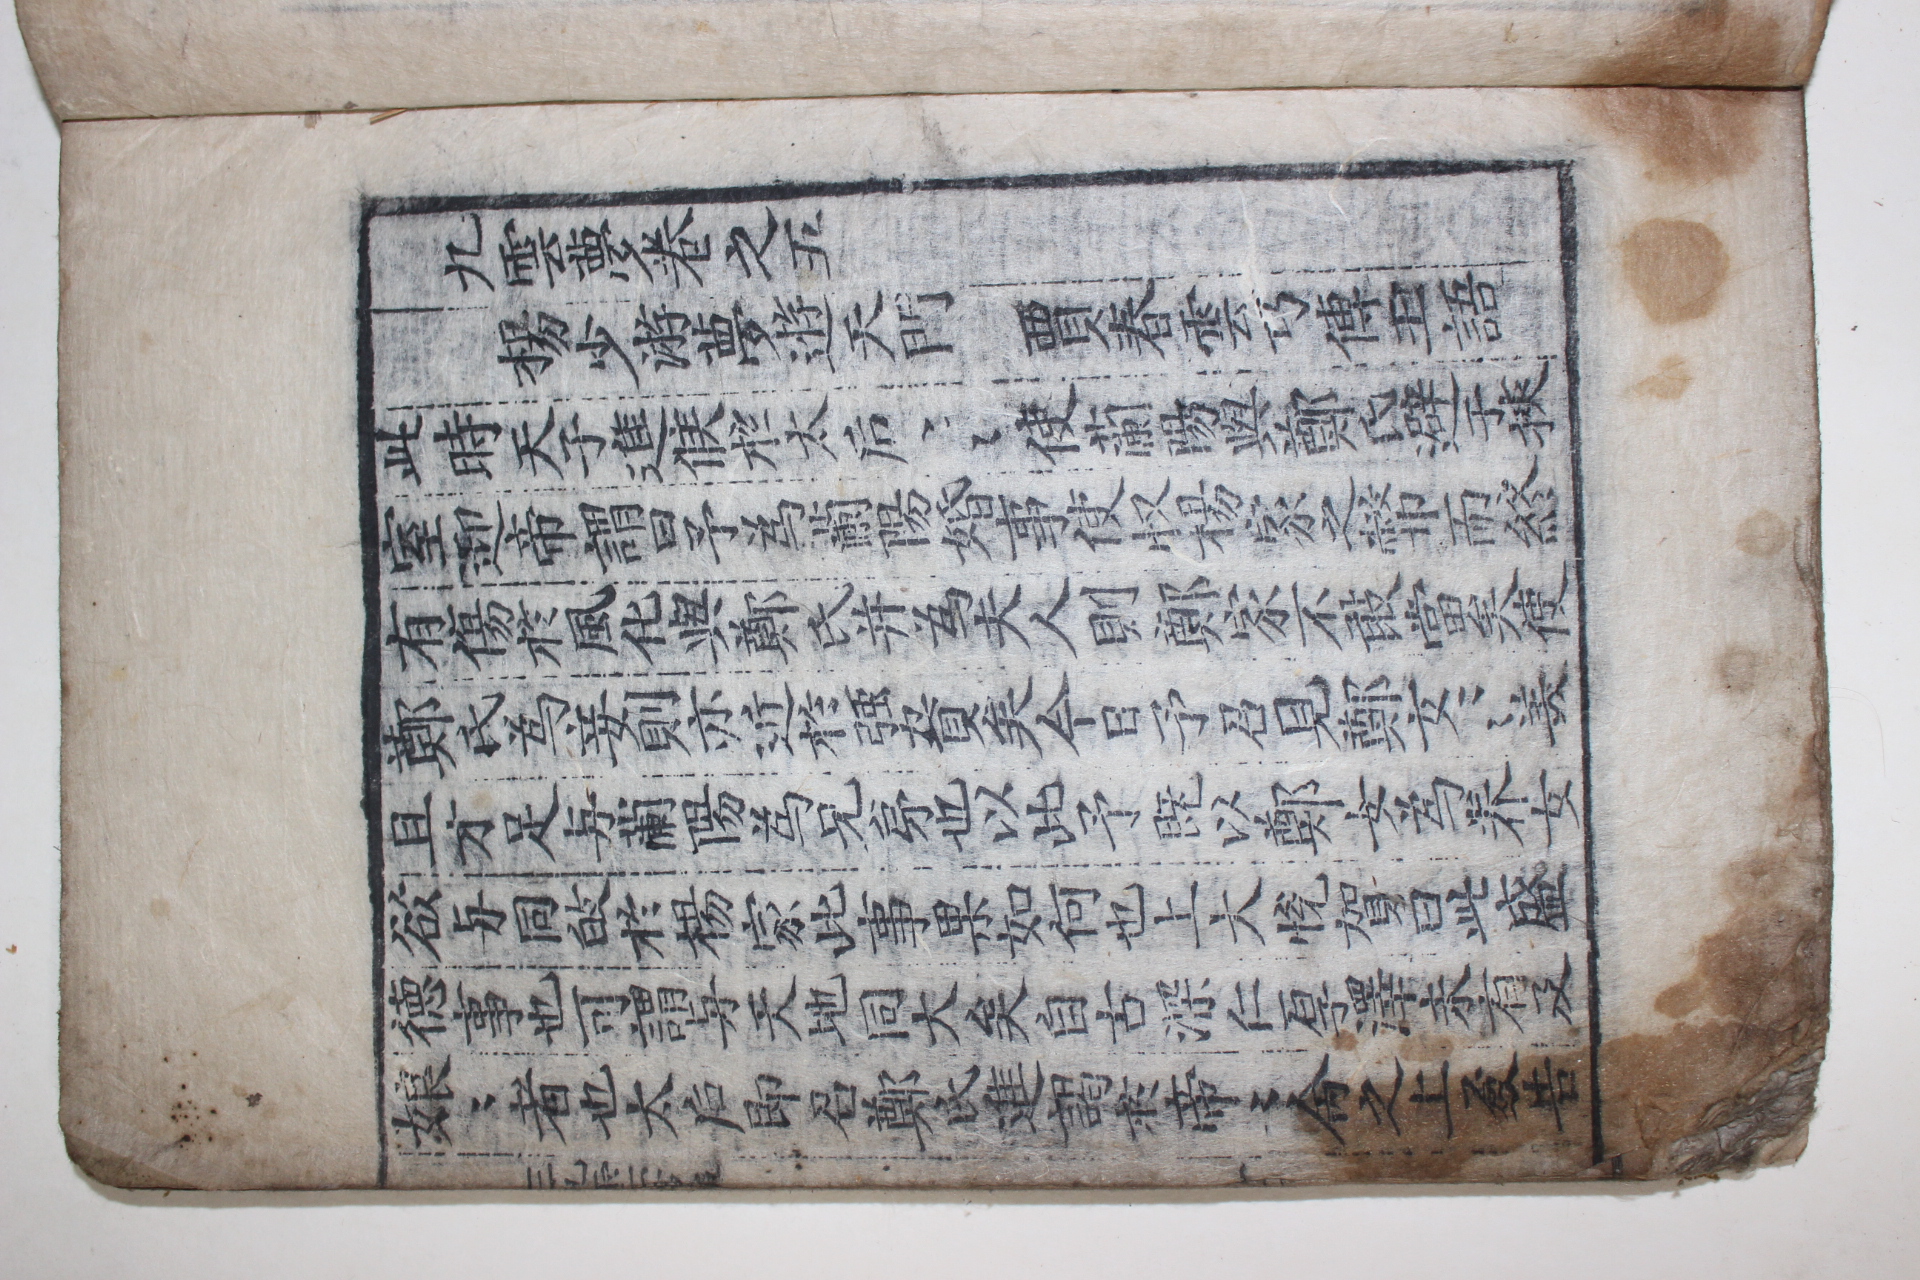 九雲夢卷之五
楊少游夢遊天門 賈春雲巧傳丑語
此時天子進候於太后〻〻使蘭陽與鄭氏避于挾
室迎帝謂曰予為蘭陽婚事使収楊家之幣而終
有傷於風化與鄭氏并為夫人則鄭家不敢當矣使
鄭氏為妾則亦近於强賁矣今日予召見鄭女〻美
且才足与蘭陽為兄弟也以此予既以鄭女為养女
欲与同故於楊家此事果如何也上大悦賀曰此盛
德事也可謂与天地同大矣自古深仁厚澤未有及
娘〻者也太后即召鄭氏進謁於帝〻命之上殿告